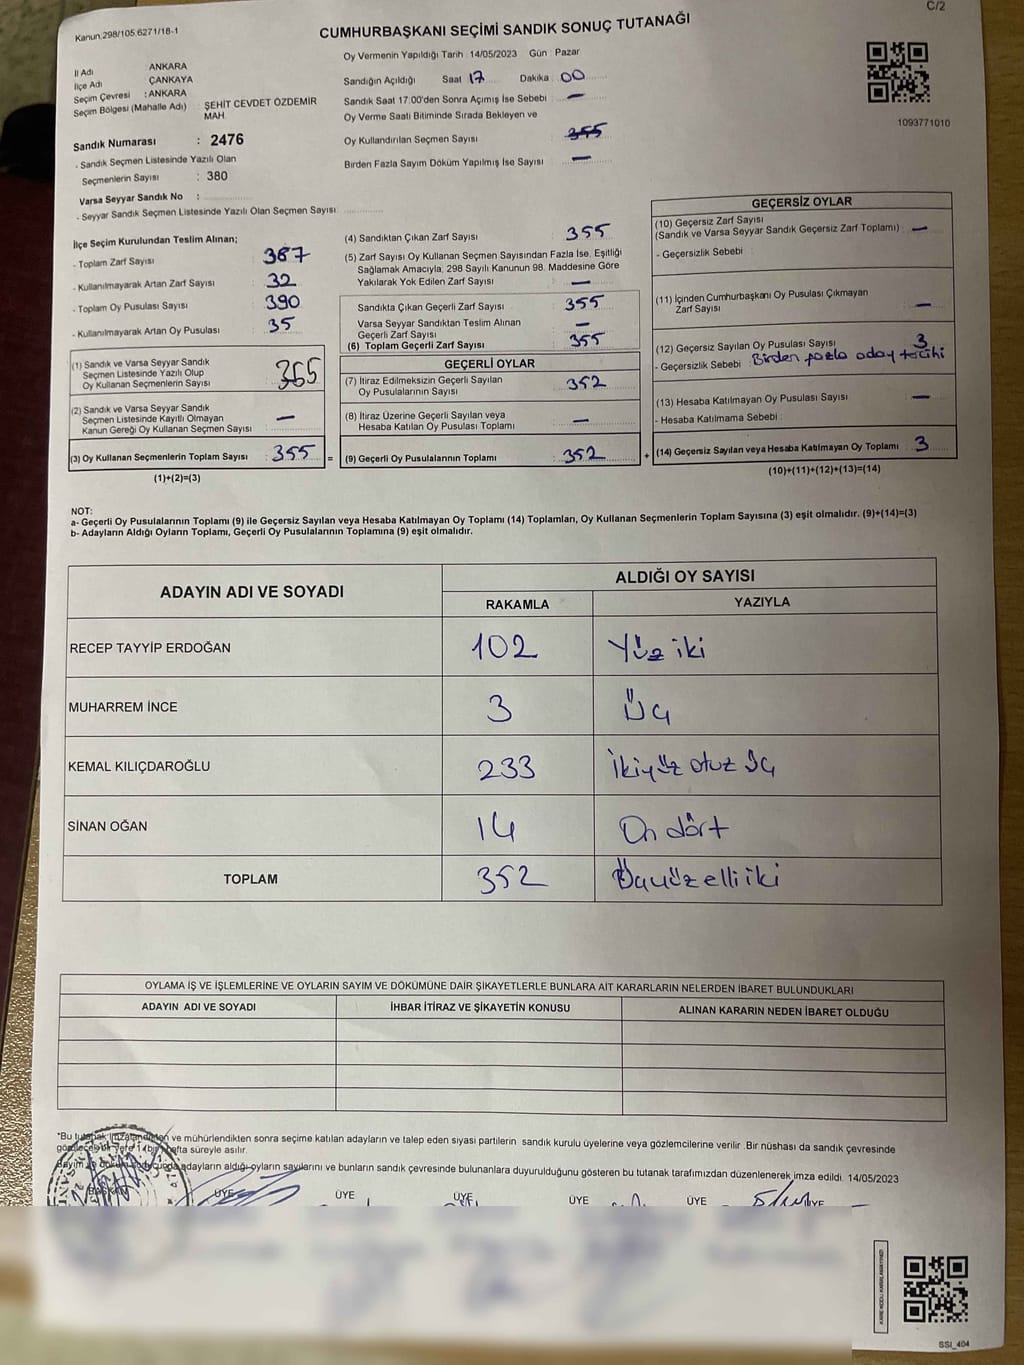 Kanun.298/105.6271/18-1
C/2
CUMHURBAŞKANI SEÇİMİ SANDIK SONUÇ TUTANAĞI
İl Adı ANKARA
İlçe Adı ÇANKAYA
Seçim Çevresi : ANKARA
Seçim Bölgesi (Mahalle Adı) : ŞEHİT CEVDET ÖZDEMİR MAH.
Sandık Numarası : 2476
- Sandık Seçmen Listesinde Yazılı Olan
Seçmenlerin Sayısı : 380
Varsa Seyyar Sandık No :
- Seyyar Sandık Seçmen Listesinde Yazılı Olan Seçmen Sayısı
Oy Vermenin Yapıldığı Tarih 14/05/2023 Gün Pazar
Sandığın Açıldığı Saat 17 Dakika 00
Sandık Saat 17:00'den Sonra Açımış İse Sebebi —
Oy Verme Saati Bitiminde Sırada Bekleyen ve
Oy Kullandırılan Seçmen Sayısı 355
Birden Fazla Sayım Döküm Yapılmış İse Sayısı —
1093771010
İlçe Seçim Kurulundan Teslim Alınan;
- Toplam Zarf Sayısı 387
- Kullanılmayarak Artan Zarf Sayısı 32
- Toplam Oy Pusulası Sayısı 390
- Kullanılmayarak Artan Oy Pusulası 35
(1) Sandık ve Varsa Seyyar Sandık
Seçmen Listesinde Yazılı Olup
Oy Kullanan Seçmenlerin Sayısı 365
(2) Sandık ve Varsa Seyyar Sandık
Seçmen Listesinde Kayıtlı Olmayan
Kanun Gereği Oy Kullanan Seçmen Sayısı —
(3) Oy Kullanan Seçmenlerin Toplam Sayısı 355 =
(1)+(2)=(3)
(4) Sandıktan Çıkan Zarf Sayısı 355
(5) Zarf Sayısı Oy Kullanan Seçmen Sayısından Fazla İse, Eşitliği
Sağlamak Amacıyla, 298 Sayılı Kanunun 98. Maddesine Göre
Yakılarak Yok Edilen Zarf Sayısı —
Sandıkta Çıkan Geçerli Zarf Sayısı 355
Varsa Seyyar Sandıktan Teslim Alınan
Geçerli Zarf Sayısı —
(6) Toplam Geçerli Zarf Sayısı 355
GEÇERLİ OYLAR
(7) İtiraz Edilmeksizin Geçerli Sayılan
Oy Pusulalarının Sayısı 352
(8) İtiraz Üzerine Geçerli Sayılan veya
Hesaba Katılan Oy Pusulası Toplamı —
(9) Geçerli Oy Pusulalarının Toplamı 352 +
GEÇERSİZ OYLAR
(10) Geçersiz Zarf Sayısı
(Sandık ve Varsa Seyyar Sandık Geçersiz Zarf Toplamı) —
- Geçersizlik Sebebi
(11) İçinden Cumhurbaşkanı Oy Pusulası Çıkmayan
Zarf Sayısı —
(12) Geçersiz Sayılan Oy Pusulası Sayısı 3
- Geçersizlik Sebebi Birden fazla aday tercihi
(13) Hesaba Katılmayan Oy Pusulası Sayısı —
- Hesaba Katılmama Sebebi
(14) Geçersiz Sayılan veya Hesaba Katılmayan Oy Toplamı 3
(10)+(11)+(12)+(13)=(14)
NOT:
a- Geçerli Oy Pusulalarının Toplamı (9) ile Geçersiz Sayılan veya Hesaba Katılmayan Oy Toplamı (14) Toplamları, Oy Kullanan Seçmenlerin Toplam Sayısına (3) eşit olmalıdır. (9)+(14)=(3)
b- Adayların Aldığı Oyların Toplamı, Geçerli Oy Pusulalarının Toplamına (9) eşit olmalıdır.
ADAYIN ADI VE SOYADI ALDIĞI OY SAYISI
RAKAMLA YAZIYLA
RECEP TAYYİP ERDOĞAN 102 Yüz iki
MUHARREM İNCE 3 Üç
KEMAL KILIÇDAROĞLU 233 İkiyüz otuz üç
SİNAN OĞAN 14 On dört
TOPLAM 352 Üçyüz elli iki
OYLAMA İŞ VE İŞLEMLERİNE VE OYLARIN SAYIM VE DÖKÜMÜNE DAİR ŞİKAYETLERLE BUNLARA AİT KARARLARIN NELERDEN İBARET BULUNDUKLARI
ADAYIN ADI VE SOYADI İHBAR İTİRAZ VE ŞİKAYETİN KONUSU ALINAN KARARIN NEDEN İBARET OLDUĞU
*Bu tutanak imzalandıktan ve mühürlendikten sonra seçime katılan adayların ve talep eden siyasi partilerin sandık kurulu üyelerine veya gözlemcilerine verilir. Bir nüshası da sandık çevresinde
görülecek bir yere 1 bir hafta süreyle asılır.
adayların aldığı oyların sayılarını ve bunların sandık çevresinde bulunanlara duyurulduğunu gösteren bu tutanak tarafımızdan düzenlenerek imza edildi. 14/05/2023
BAŞKAN ÜYE ÜYE ÜYE ÜYE ÜYE ÜYE
SSI_404